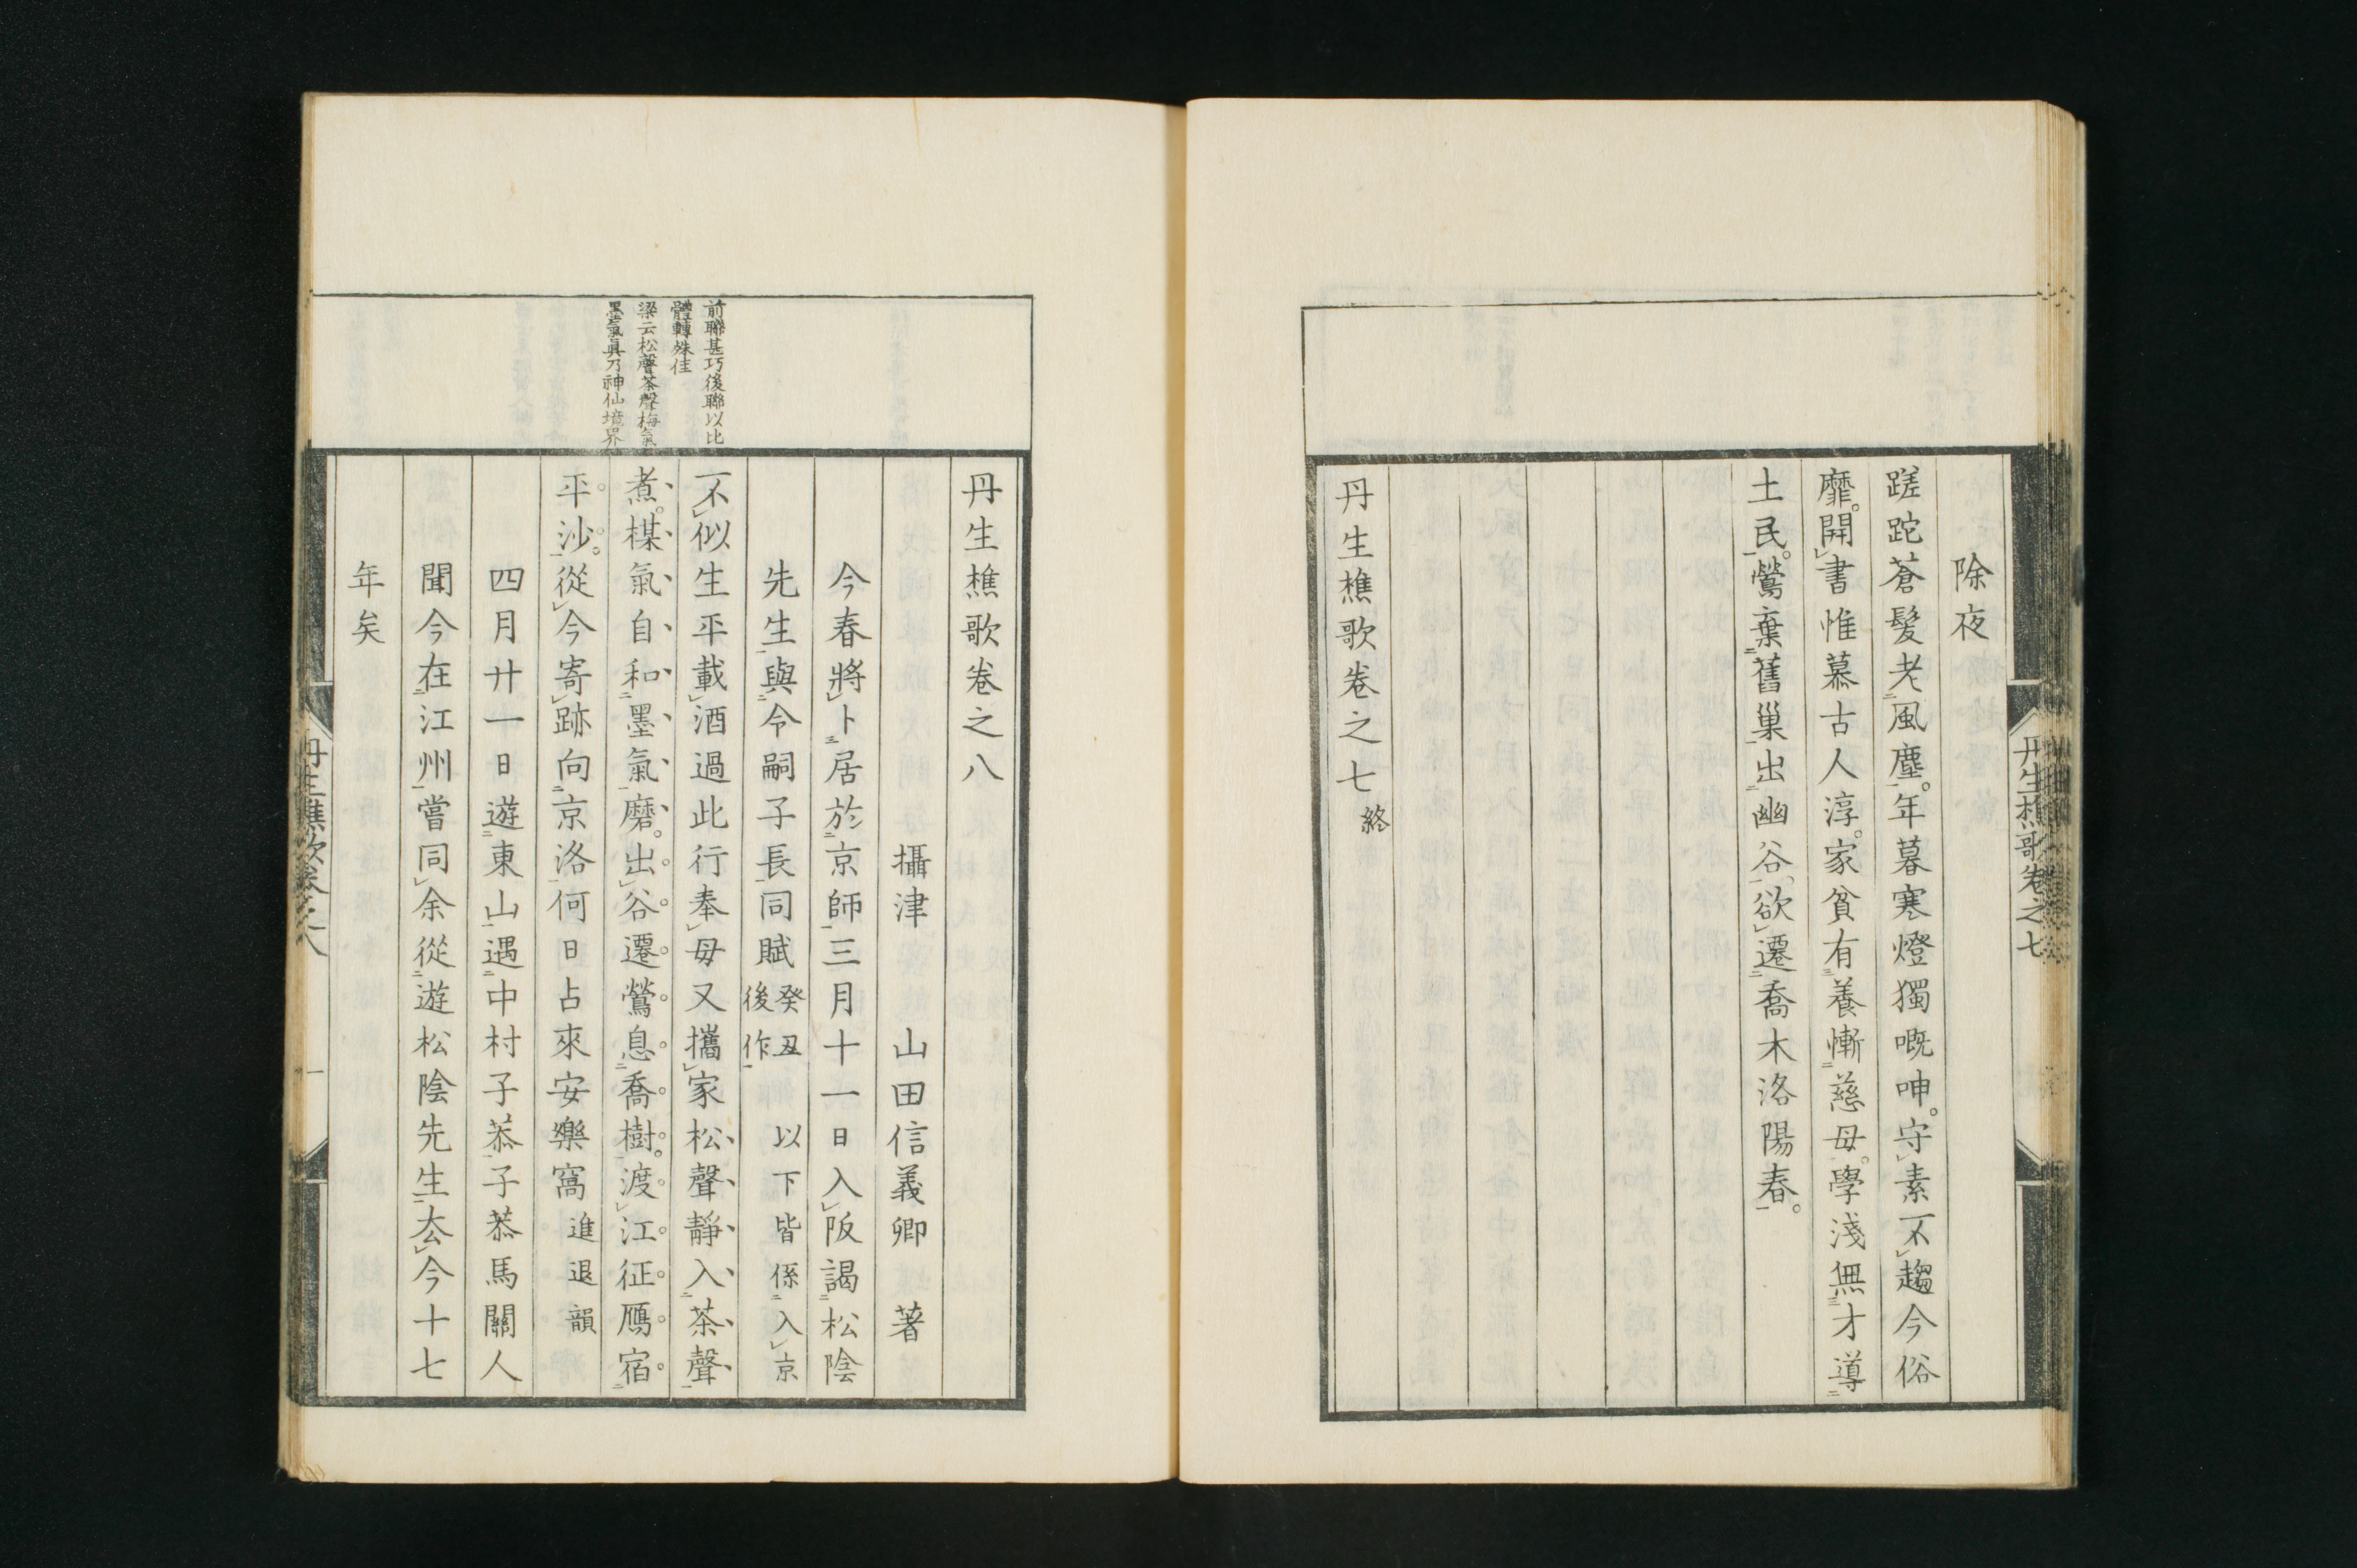 除夜
蹉跎蒼髮老風塵。年暮寒燈獨嘅呻。守素不趨今俗
靡。開書惟慕古人淳。家貧有養慚慈母。學淺無才導
土民。鶯棄舊巢出幽谷、欲遷喬木洛陽春。
丹生樵歌卷之七終
丹生樵歌卷之七
丹生樵歌卷之八
攝津 山田信義卿 著
今春將卜居於京師三月十一日入阪謁松陰
先生與令嗣子長同賦癸丑後作以下皆係入京
不似生平載酒過此行奉母又攜家松聲靜入茶聲
煮。楳氣自和墨氣磨。出谷遷鶯息喬樹。渡江征鴈宿
平沙。從今寄跡向京洛何日占來安樂窩進退韻
四月廿一日遊東山遇中村子恭子恭馬關人
聞今在江州嘗同余從遊松陰先生厺今十七
年矣
前聯甚巧後聯以比
體轉殊佳
梁云松聲茶聲梅氣
墨氣眞乃神仙境界
丹生樵歌卷之八
一